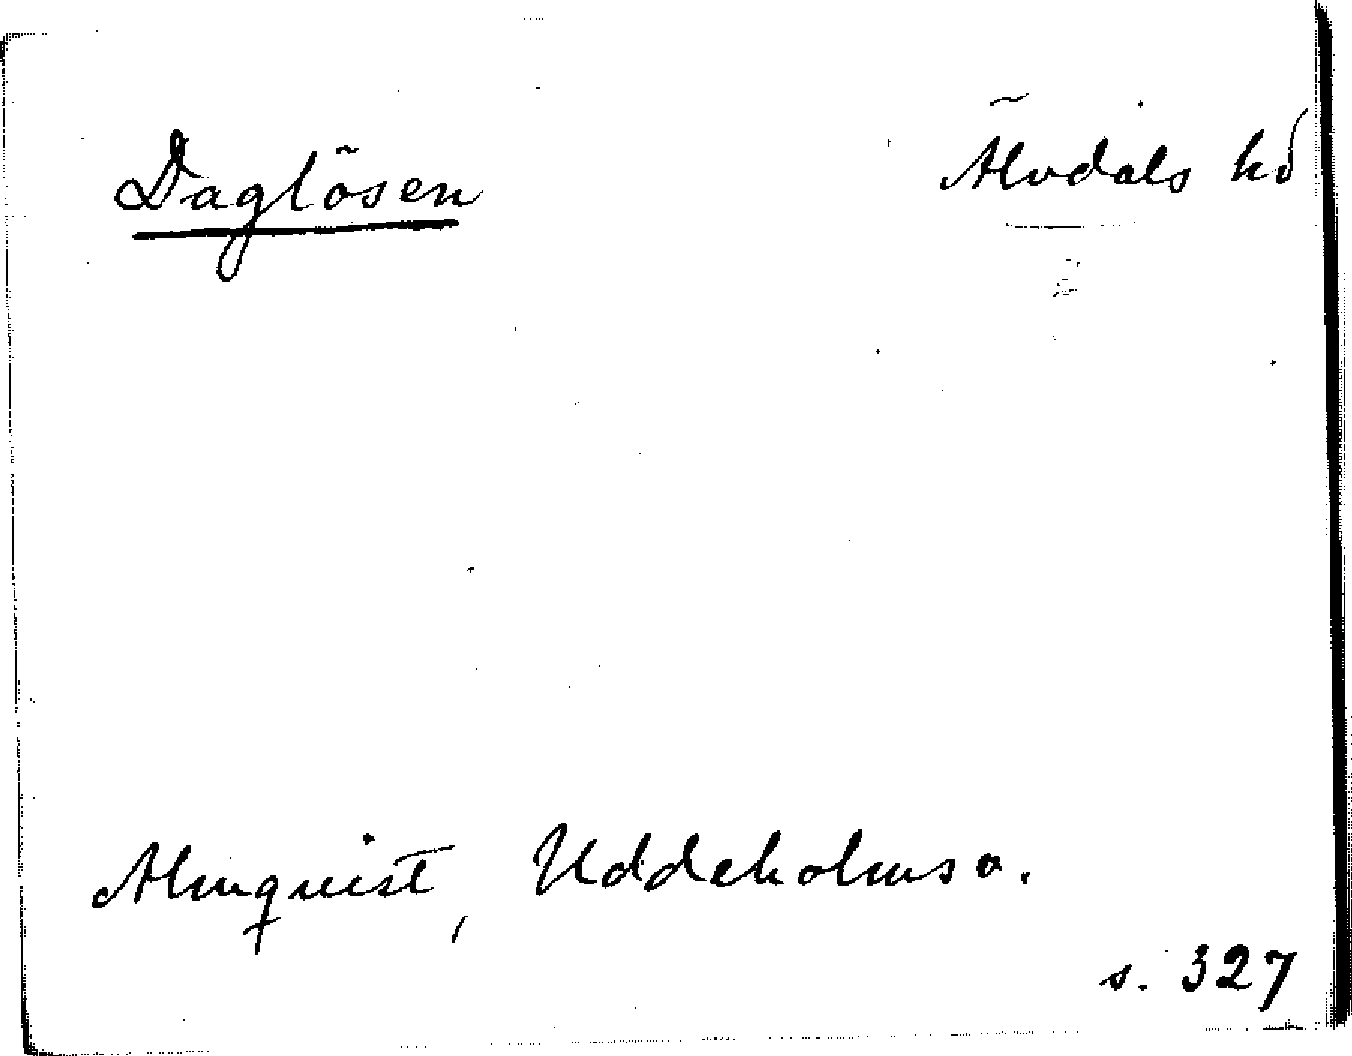 Daglösen Älvdals hd
Almquist, Uddeholms a.
s. 327